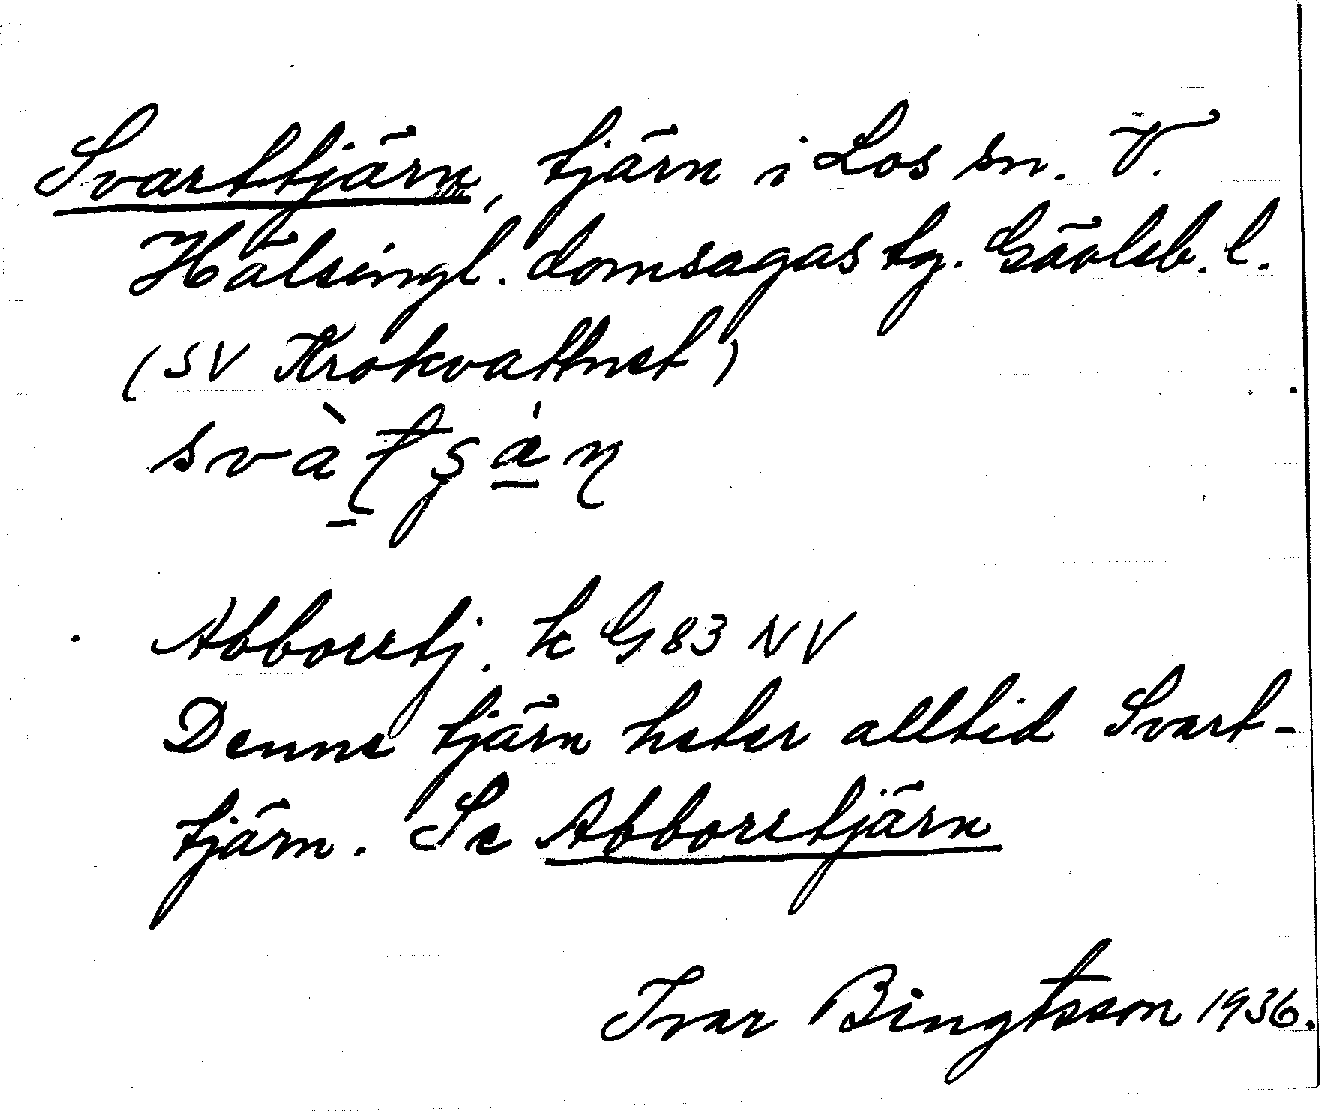 Svarttjärn, tjärn i Los sn. V.
Hälsingl. domsagas tg. Gävleb. l.
(SV Krokvattnet)
Abborrtj. k G 83 NV
Denne tjärn heter alltid Svart-
tjärn. Se Abborrtjärn
Ivar Bingtsson 1936.